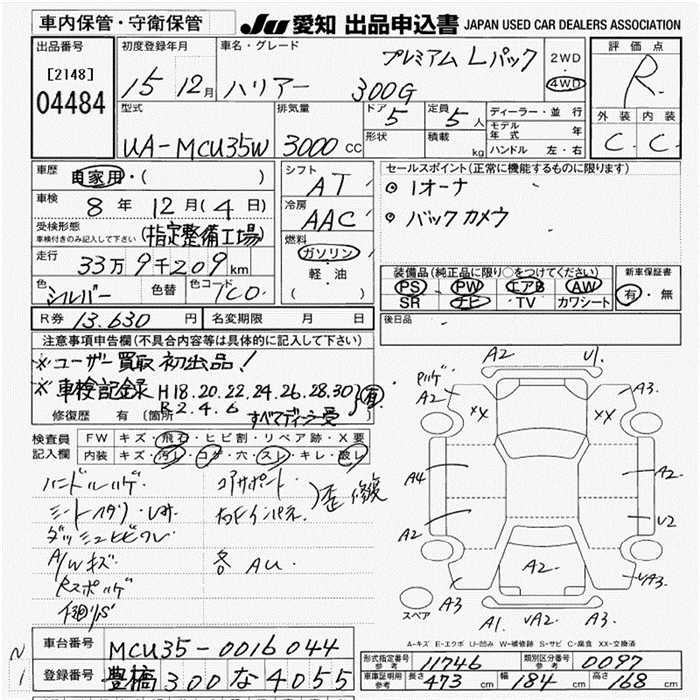 車内保管・守衛保管
JU 愛知 出品申込書 JAPAN USED CAR DEALERS ASSOCIATION
出品番号
[2148]
04484
初度登録年月
15 12月
車名・グレード
プレミアム Lパック
ハリアー 300G
2WD
・
4WD
評価点
R
外装 内装
C C
型式
UA-MCU35W
排気量
3000 CC
ドア 5
形状
定員 5 人
積載 kg
ディーラー・並行
モデル年式 年
ハンドル 左・右
車歴
自家用・( )
車検
8年 12月(4日)
受検形態
車検付きのみ記入して下さい
(指定整備工場)
走行
33万9千209km
色
シルバー
色替
色コード
1C0
シフト
AT
冷房
AAC
燃料
ガソリン
軽・油
( )
セールスポイント(正常に機能するものに限ります)
◎ 1オーナ
◎ バックカメラ
装備品(純正品に限り○をつけてください)
PS PW エアB AW
SR ナビ TV カワシート
新車保証書
有・無
後日品
R券 13.630 円
名変期限 月 日
注意事項申告欄(不具合内容等は具体的に記入して下さい)
※ユーザー買取 初出品!
※車検記録 H18.20.22.24.26.28.30
R2.4.6 すべてディーラー受
有
修復歴 有〔箇所
検査員記入欄
FW キズ・飛石・ヒビ割・リペア跡・X要
内装 キズ・汚レ・コゲ・穴・スレ・キレ・破レ
ハンドルハゲ
シートヘタリ・
ダッシュヒビワレ
A/Wキズ
Rスポハゲ
コアサポート
歪 修復
各 AU
A2 U1
A2 XX XX A3
A4 A2
A2 U2
A2
A3 UA3
スペア
A1 UA2 A3
A-キズ E-エクボ U-凹み W-補修跡 S-サビ C-腐食 XX-交換済
車台番号
MCU35-0016044
登録番号
豊橋 300 な 4055
N
1
形式指定番号 参考 11746
類別区分番号 参考 0097
車庫証明用参考 長さ 473 cm 幅 184 cm 高さ 168 cm